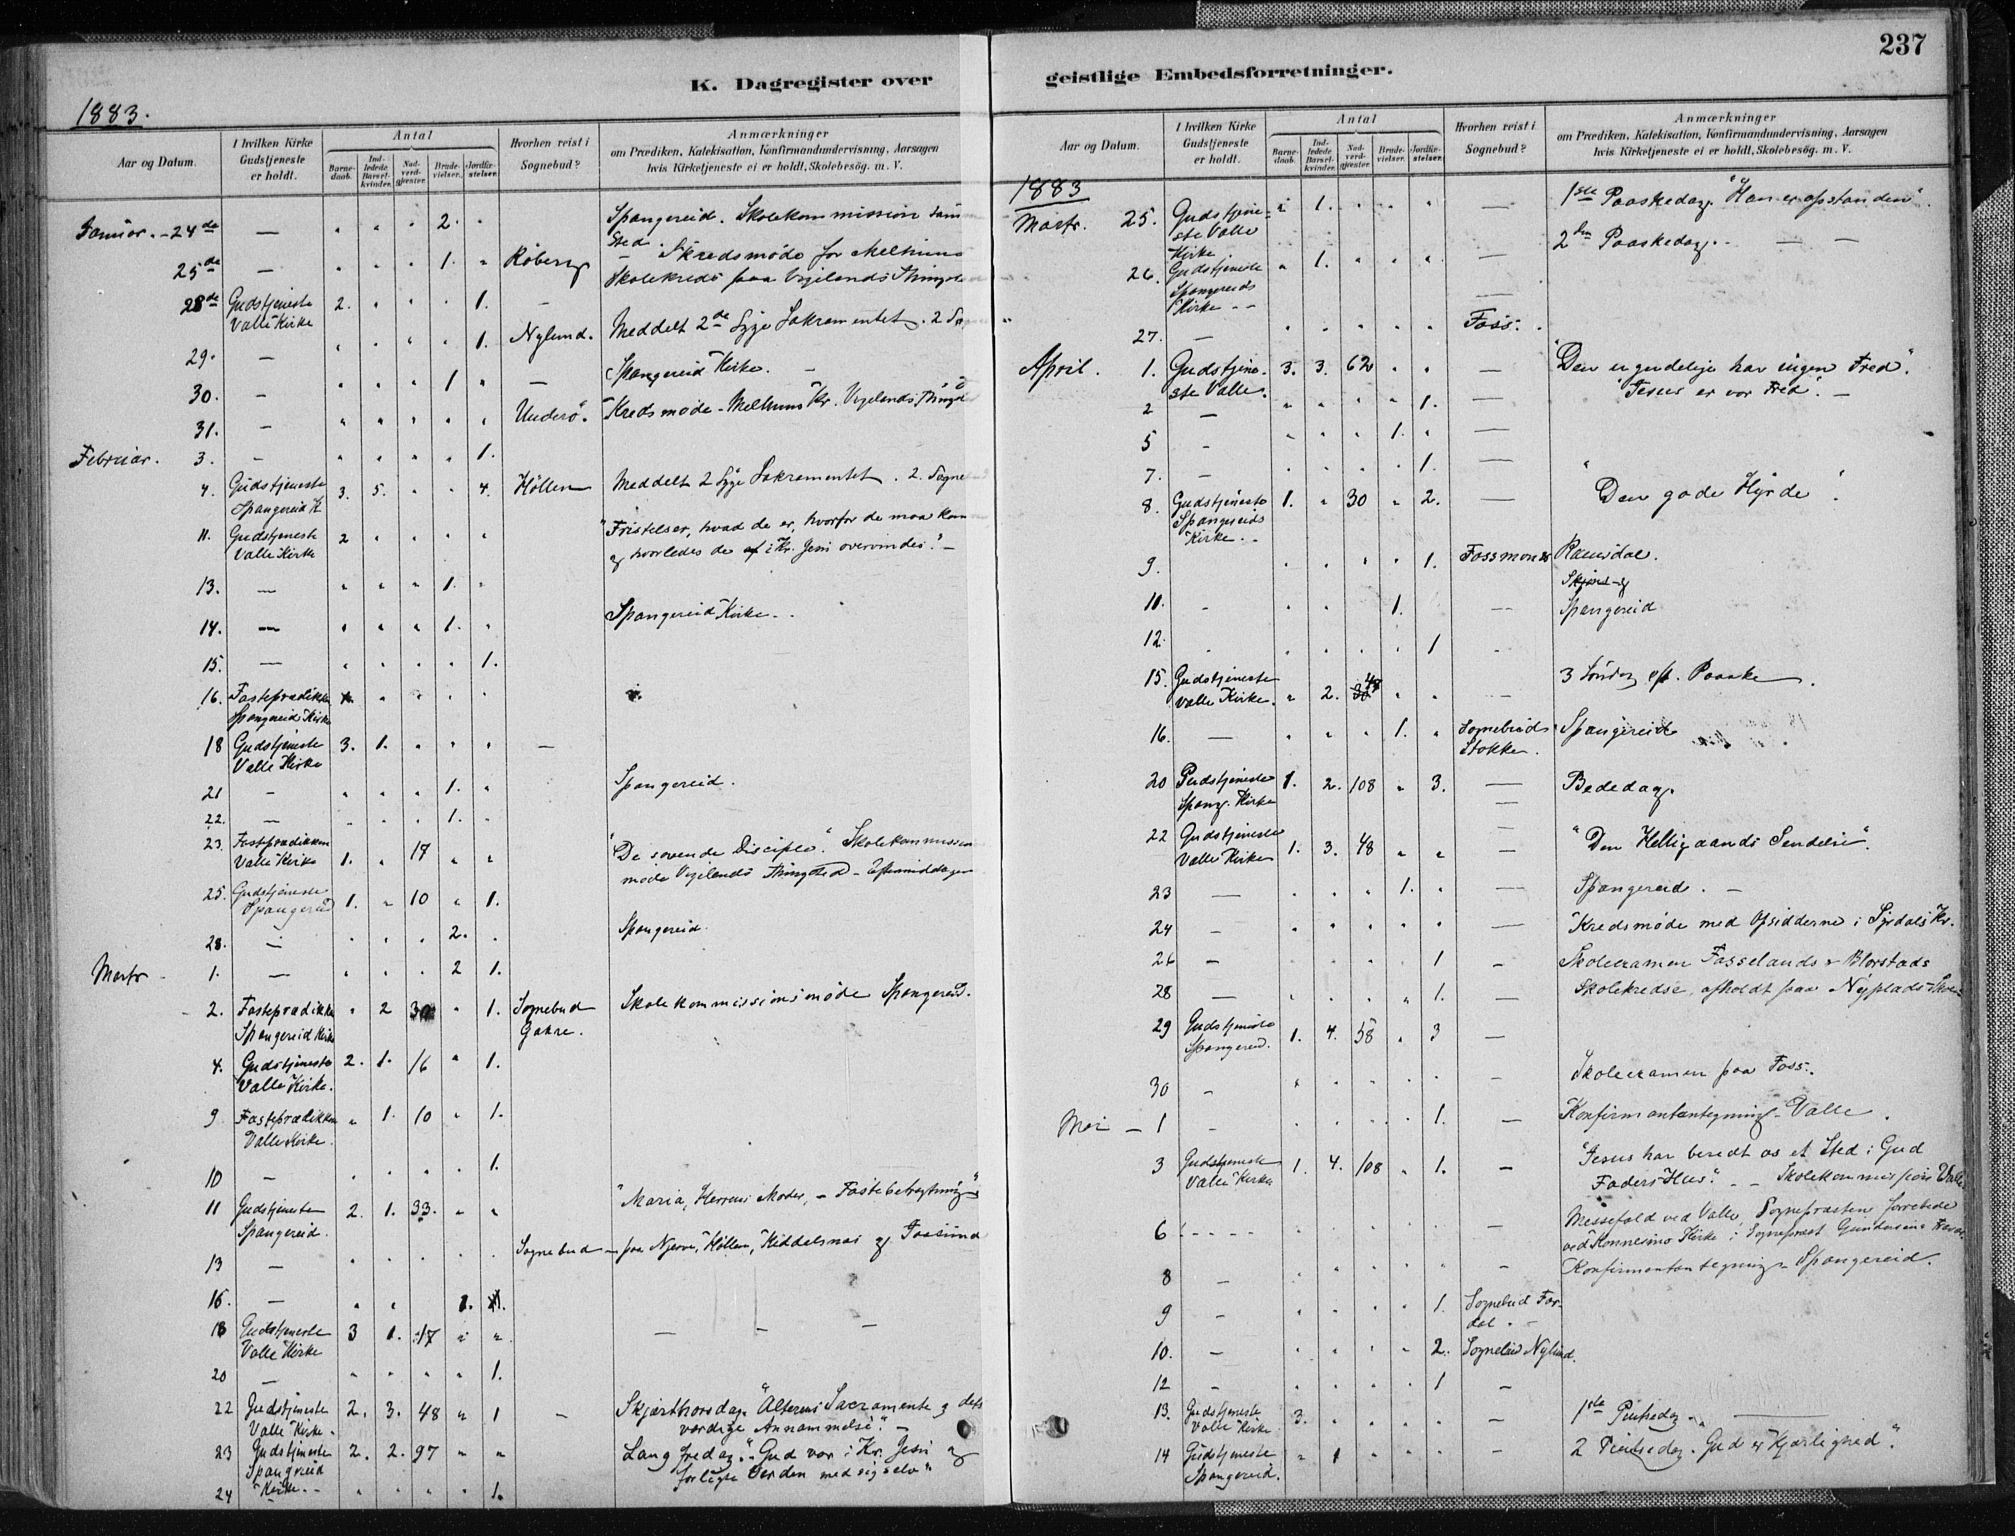 237
K. Dagregister over
geistlige Embedsforretninger.
1883.
Aar og Datum.
I hvilken Kirke Gudstjeneste er holdt.
Antal
Barne-daab.
Ind-ledede Barsel-kvinder.
Nad-verd-gjester.
Brude-vielser.
Jordfæ-stelser.
Hvorhen reist i Sognebud?
Anmærkninger
om Prædiken, Katekisation, Konfirmandundervisning, Aarsagen
hvis Kirketjeneste ei er holdt, Skolebesøg. m. V.
Januar. - 24de — " " " 2. " Spangereid. Skolekommission
Sted
25de — " " " 1. " Roberg — Kredsmøde for Melhuus
Skolekreds paa Vigelands Thingsted
28de Gudstjeneste 2. " " " 1. –
Valle Kirke
29. — " " " " 1. Nylund. Meddelt 2de Syge Sakramentet. 2
30. – " " " 1 " — Spangereid Kirke.
31. – " " " " " Underö. Kredsmøde - Melhuus Kr. Vigelands
Februar. 3. – " " " " 1.
4. Gudstjeneste 3. 5. " " 4. Höllen Meddelt 2 Syge Sakramentet. 2.
Spangereid K.
11. Gudstjeneste 2 " " " " "Fristelser, hvad de er, hvorfor de maa
Valle Kirke og hvorledes de af i Kr. Jesu overvindes." –
13. — " " " 1. "
14. — " " " 1. " Spangereid Kirke. .
15. — " " " " 1.
16. Fasteprædikken
Spangereid Kirke
18 Gudstjeneste 3. 1. " " " –
Valle Kirke
21 – " " " 1. " Spangereid.
22. — " " " 1.
23. Fasteprædikken
Valle Kirke 1. " 17 " " "De sovende Disciple." Skolekommissions
møde Vigelands Thingsted - Eftermiddagen
25. Gudstjeneste
Spangereid 1. " 10 " 1.
28. — " " " 2. . Spangereid.
Marts 1. — " " " 2 1.
2. Fasteprædikken " 2 30 " 1. Sognebud Skolekommissionsmøde Spangereid.
Spangereid Kirke Gahre.
4. Gudstjeneste 2. 1. 16 " 1.
Valle Kirke.
9 Fasteprædikken " 1. 10 " 1.
Valle Kirke.
10 – " " " " 1.
11 Gudstjeneste 2. 1. 33. " " "Maria, Herrens Moder, – Fastebetragtning"
Spangereid.
13 — . . . . . Sognebud – paa Njerve, Höllen, Kiddelsnæs og
16. — " " 1. 1.
18 Gudstjeneste 3 1. 17 " " — – —
Valle Kirke
20 — " " " " 1.
22 Gudstjeneste 2. 3. 48 " 1 – Skjærthorsdag. "Alterens Sacramente og dets
Valle Kirke. værdige Annammelse". –
23 Gudstjeneste 2. 2. 97 " " Langfredag. "Gud var i Kr. Jesu og
Spangreid forligte Verden med sig selv"
24 Kirke. – " " " " 1.
Aar og Datum.
I hvilken Kirke Gudstjeneste er holdt.
Antal
Barne-daab.
Ind-ledede Barsel-kvinder.
Nad-verd-gjester.
Brude-vielser.
Jordfæ-stelser.
Hvorhen reist i Sognebud?
Anmærkninger
om Prædiken, Katekisation, Konfirmandundervisning, Aarsagen
hvis Kirketjeneste ei er holdt, Skolebesög. m. V.
1883
Marts. 25. Gudstjene- " 1. " " " — 1ste Paaskedag. "Han er opstanden".
ste Valle
Kirke
26. Gudstjeneste " 1. " " " — 2den Paaskedag. — –
Spangereids
Kirke – –
27. — " " " " " Foss.
April. 1. Gudstjene- 3. 3. 62 " " — "Den ugudelige har ingen Fred".
ste Valle. "Jesus er vor Fred". –
2 — " " " " 1. —
5 – " " " 1. " —
7. – " " " " 1. —
8. Gudstjeneste 1. " 30 " 2. — "Den gode Hyrde".
Spangereids
Kirke. –
9. " " " " 1. Fossmones Ramsdal.
11. – " " " 1. — Spangereid
12. " " " " 1 .
15. Gudstjeneste 48 3 Søndag eft. Paaske.
Valle Kirke. " 2. " " –
16. — " " " 1. " Sognebud Spangereid
Stokke.
20 Gudstjeneste 1. 2. 108 " 3. — Bededag.
Spang. Kirke
22 Gudstjeneste
Valle Kirke 1. 3. 48 " " — "Den Helligaands Sendelse".
23 — " " " 1. " — Spangereids. –
24 – " " " " " — Kredsmøde med Opsidderne i Syrdals Kr.
26 – " " " " 1 – Skolexamen Fasselands & Blørstads
28 — " " " " 1. – Skolekredse, afholdt paa Nyplads Skole
29 Gudstjeneste 1. 4. 58 " 3 —
Spangereid.
30 – " " " " " – Skolexamen paa Foss.
Mai – 1 – " " " " 1. – Konfirmantantegning - Valle.
3 Gudstjeneste 1. 4. 108 " 1. – "Jesus har beredt os et Sted i Gud
Valle Kirke Faders Hus". – – Skolekommission Valle
6 – – – – " " " " " – Messefald ved Valle, Sognepræsten forrettede
ved Konnesmo Kirke i Sognepræst Gundersens Fravær
8 – " " " " " – Konfirmantantegning – Spangereid.
9 – " " " " 1. Sognebud For-
dal. –
10. – " " " " 2. Sognebud Nylund.
12 – " " " " 1 –
13. Gudstjeneste 3. " " " " – 1ste Pintsedag.
Valle Kirke
14 Gudstjeneste " 1 " " " – 2 Pintsedag. "Gud er Kjærlighed".
Spangereid.